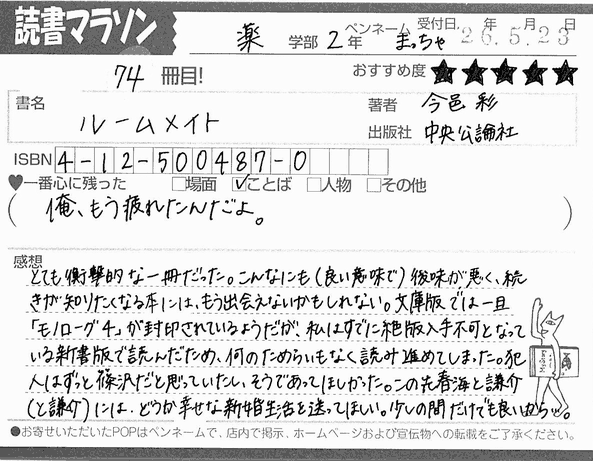 読書マラソン
薬 学部 2年 ペンネーム まっちゃ 受付日 26年 5月 23日
74 冊目! おすすめ度 ★★★★★
書名 ルームメイト
著者 今邑 彩
出版社 中央公論社
ISBN 4-12-500487-0
♥一番心に残った □場面 ☑ことば □人物 □その他
(俺、もう疲れたんだよ。)
感想
とても衝撃的な一冊だった。こんなにも(良い意味で)後味が悪く、続
きが知りたくなる本には、もう出会えないかもしれない。文庫版では一旦
「モノローグ4」が封印されているようだが、私はすでに絶版入手不可となって
いる新書版で読んだため、何のためらいもなく読み進めてしまった。犯
人はずっと篠沢だと思っていたい、そうであってほしかった。この先春海と謙介
(と謙介)には、どうか幸せな新婚生活を送ってほしい。少しの間だけでも良いから…。
●お寄せいただいたPOPはペンネームで、店内で掲示、ホームページおよび宣伝物への転載をご了承ください。